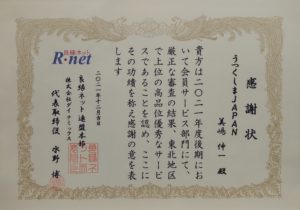 良縁ネット
R·net
感謝状
うつくしまJAPAN
美嶋 伸一 殿
貴方は二〇二一年度後期にお
いて会員サービス部門にて、
厳正な審査の結果、東北地区
で上位の高品位優秀なサービ
スであることを認め、ここに
その功績を称え感謝の意を表
します
二〇二一年十二月吉日
良縁ネット連盟本部
代表取締役 水野 博